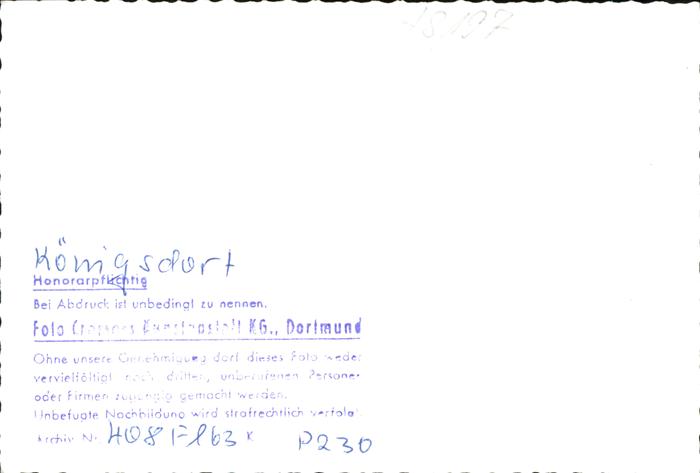 Königsdorf
Honorarpflichtig
Bei Abdruck ist unbedingt zu nennen.
Foto Kunstanstalt KG., Dortmund
Ohne unsere Genehmigung darf dieses Foto weder
vervielfältigt noch dritten, unberufenen Personen
oder Firmen zugängig gemacht werden.
Unbefugte Nachbildung wird strafrechtlich verfolgt.
Archiv Nr. K P230